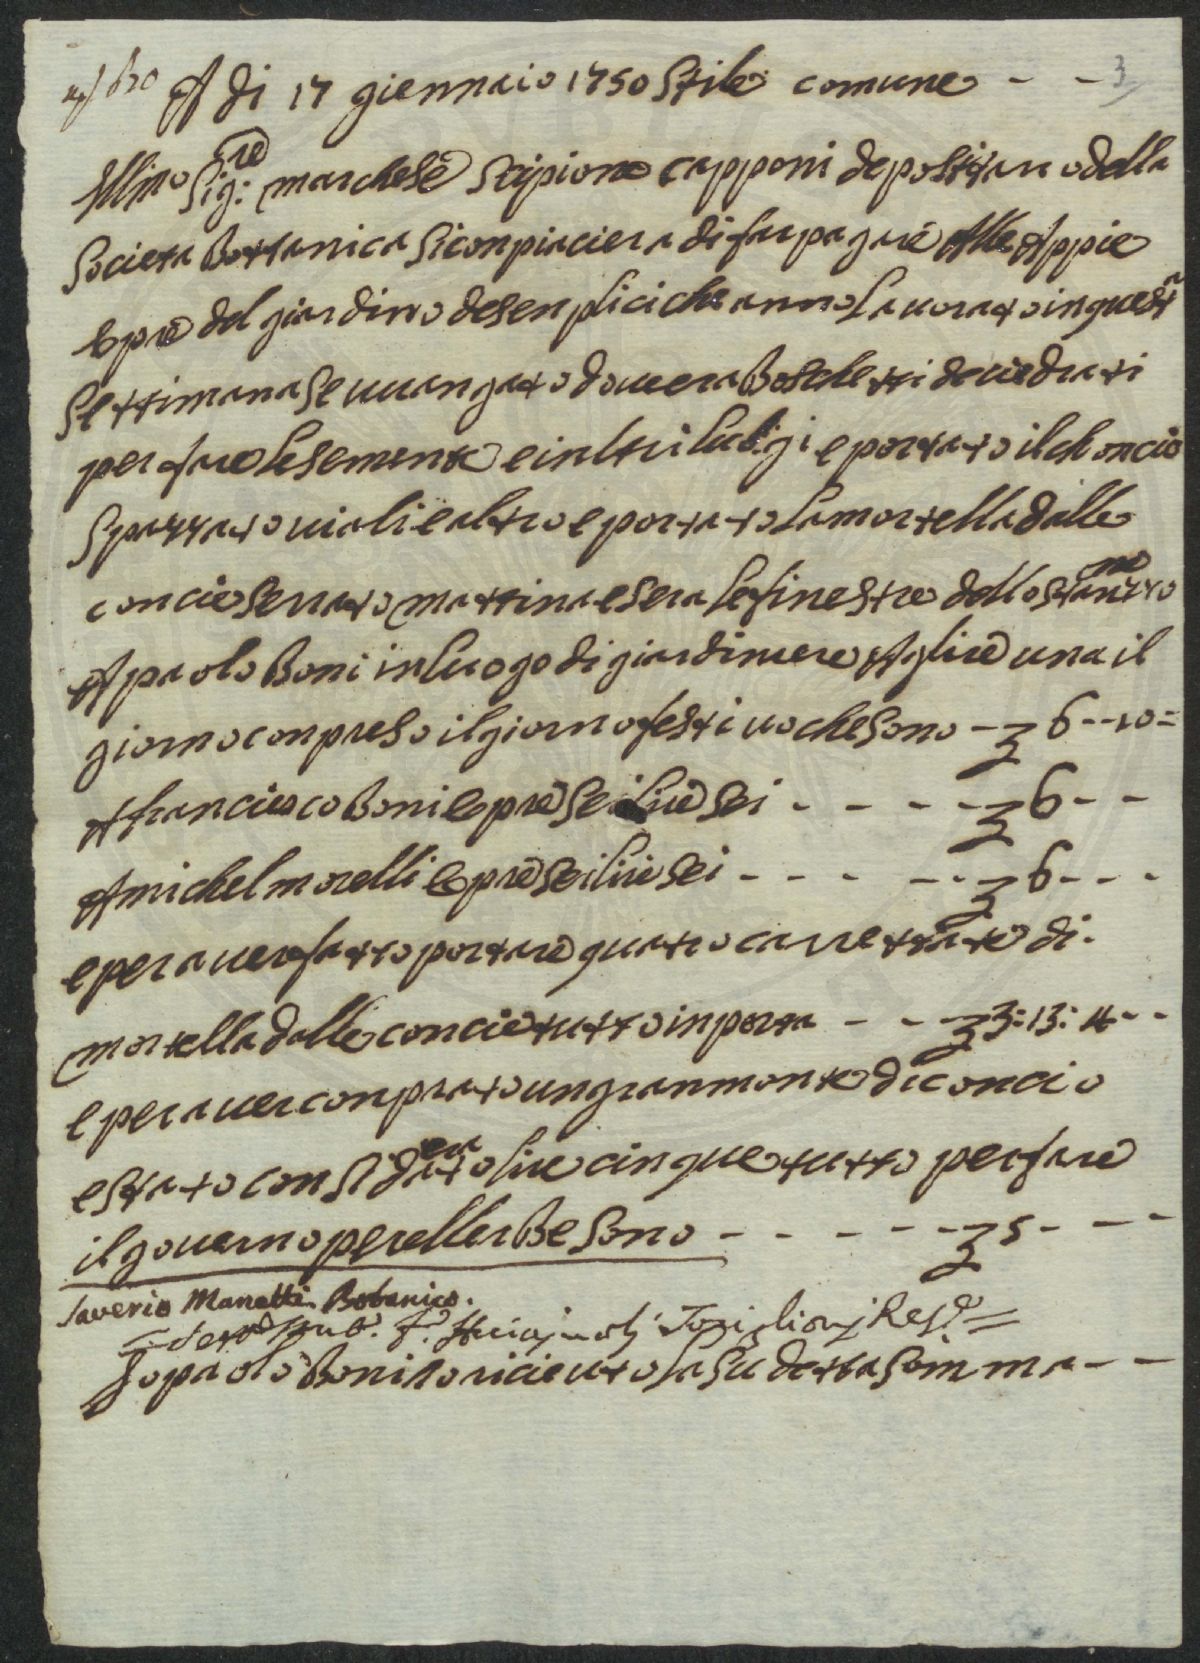 A di 17 giennaio 1750 Stile comune - - 3
Illmo Sig:re marchese Scipione capponi depositario della
Societa Bottanica Si conpiaciera di far pagare Alle Appie
Opre del giardino de senplici che anno Lavorato in questa
Settimana Se vuangato dove era Boschetti de vedrati
per fare le semente e in altri luogi e portato il choncio
Spazzato viali e altro e portato La mortella dalle
concie Serrato mattina e sera le finestre dello stanzone
A paolo Boni in luogo di giardiniere A lire una il
giorno conpreso il giorno festivo che Sono - 6 - - 10 =
A francieco Boni Opre Sei lire Sei - - - - - 6 - -
A michel morelli Opre Sei lire Sei - - - - - - 6 - - -
e per aver fatto portare quatro carrettate di
mortella dalle concie tutto inporta - - - 3: 13: 4 - -
e per aver conprato un gran monte di concio
e stato considerato lire cinque tutto per fare
il governo per ell erbe Sono - - - - - - - 5 - - -
Saverio Manetti Botanico.
Io paolo Boni o ricieuto La Su detta Somma - -